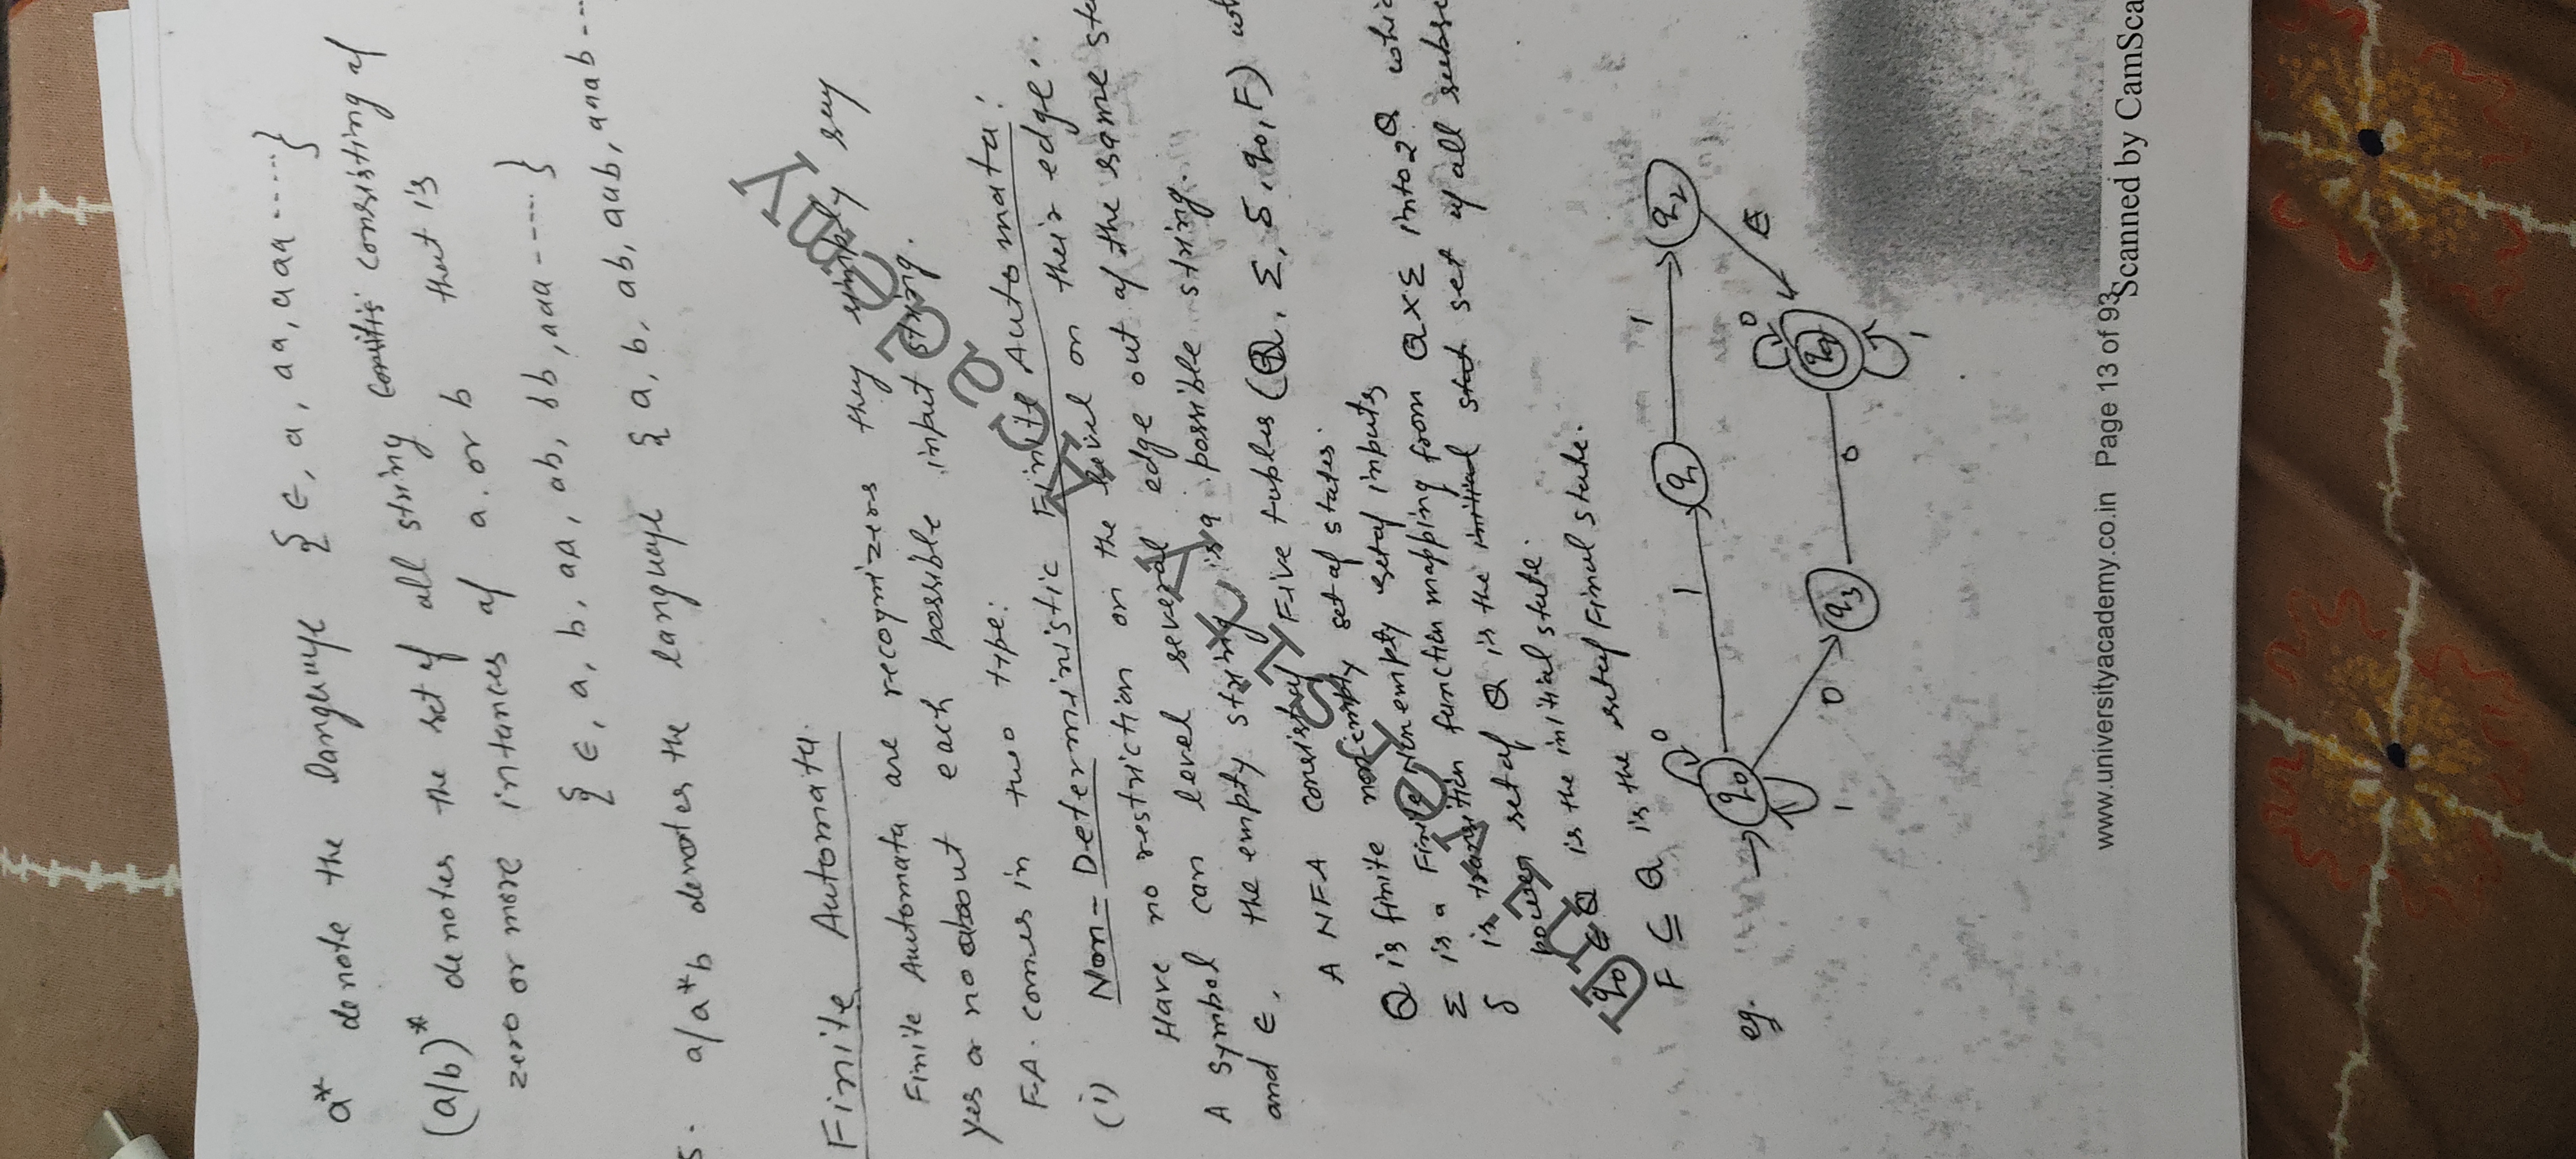 a* denote the language { ∈, a, aa, aaa ----- }
(a/b)* denotes the set of all string consisting of
zero or more intances of a. or b that is
{ ∈, a, b, aa, ab, bb, aaa ----- }
5. a/a*b denotes the language { a, b, ab, aab, aaab ---
Finite Automata.
Finite Automata are recognizers they simply say
yes or no about each possible input string.
F.A. comes in two type:
(i) Non-Deterministic Finite Automata:
Have no restriction on the level on their edge..
A symbol can level several edge out of the same sta
and ∈, the empty string is a possible string.
A NFA consist of Five tubles (Q, Σ, δ, q0, F) wh
Q is finite non-empty set of states.
Σ is a Finite Non empty set of inputs
δ is transition function mapping from Q×Σ into 2^Q whic
power set of Q is the initial stat set of all subse
q0 ∈ Q is the initial state.
F ⊆ Q is the set of Final state.
eg.
0
1
1
q0
q1
q2
0
∈
1
0
q3
0
1
University Academy
www.universityacademy.co.in Page 13 of 93
Scanned by CamSca